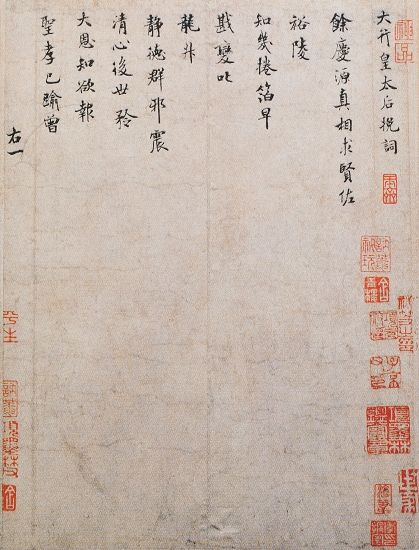 大行皇太后挽詞
餘慶源真相求賢佐
裕陵
知幾捲箔早
戡變叱
龍升
靜德群邪震
清心後世矜
大恩知欲報
聖孝已踰曾
右一